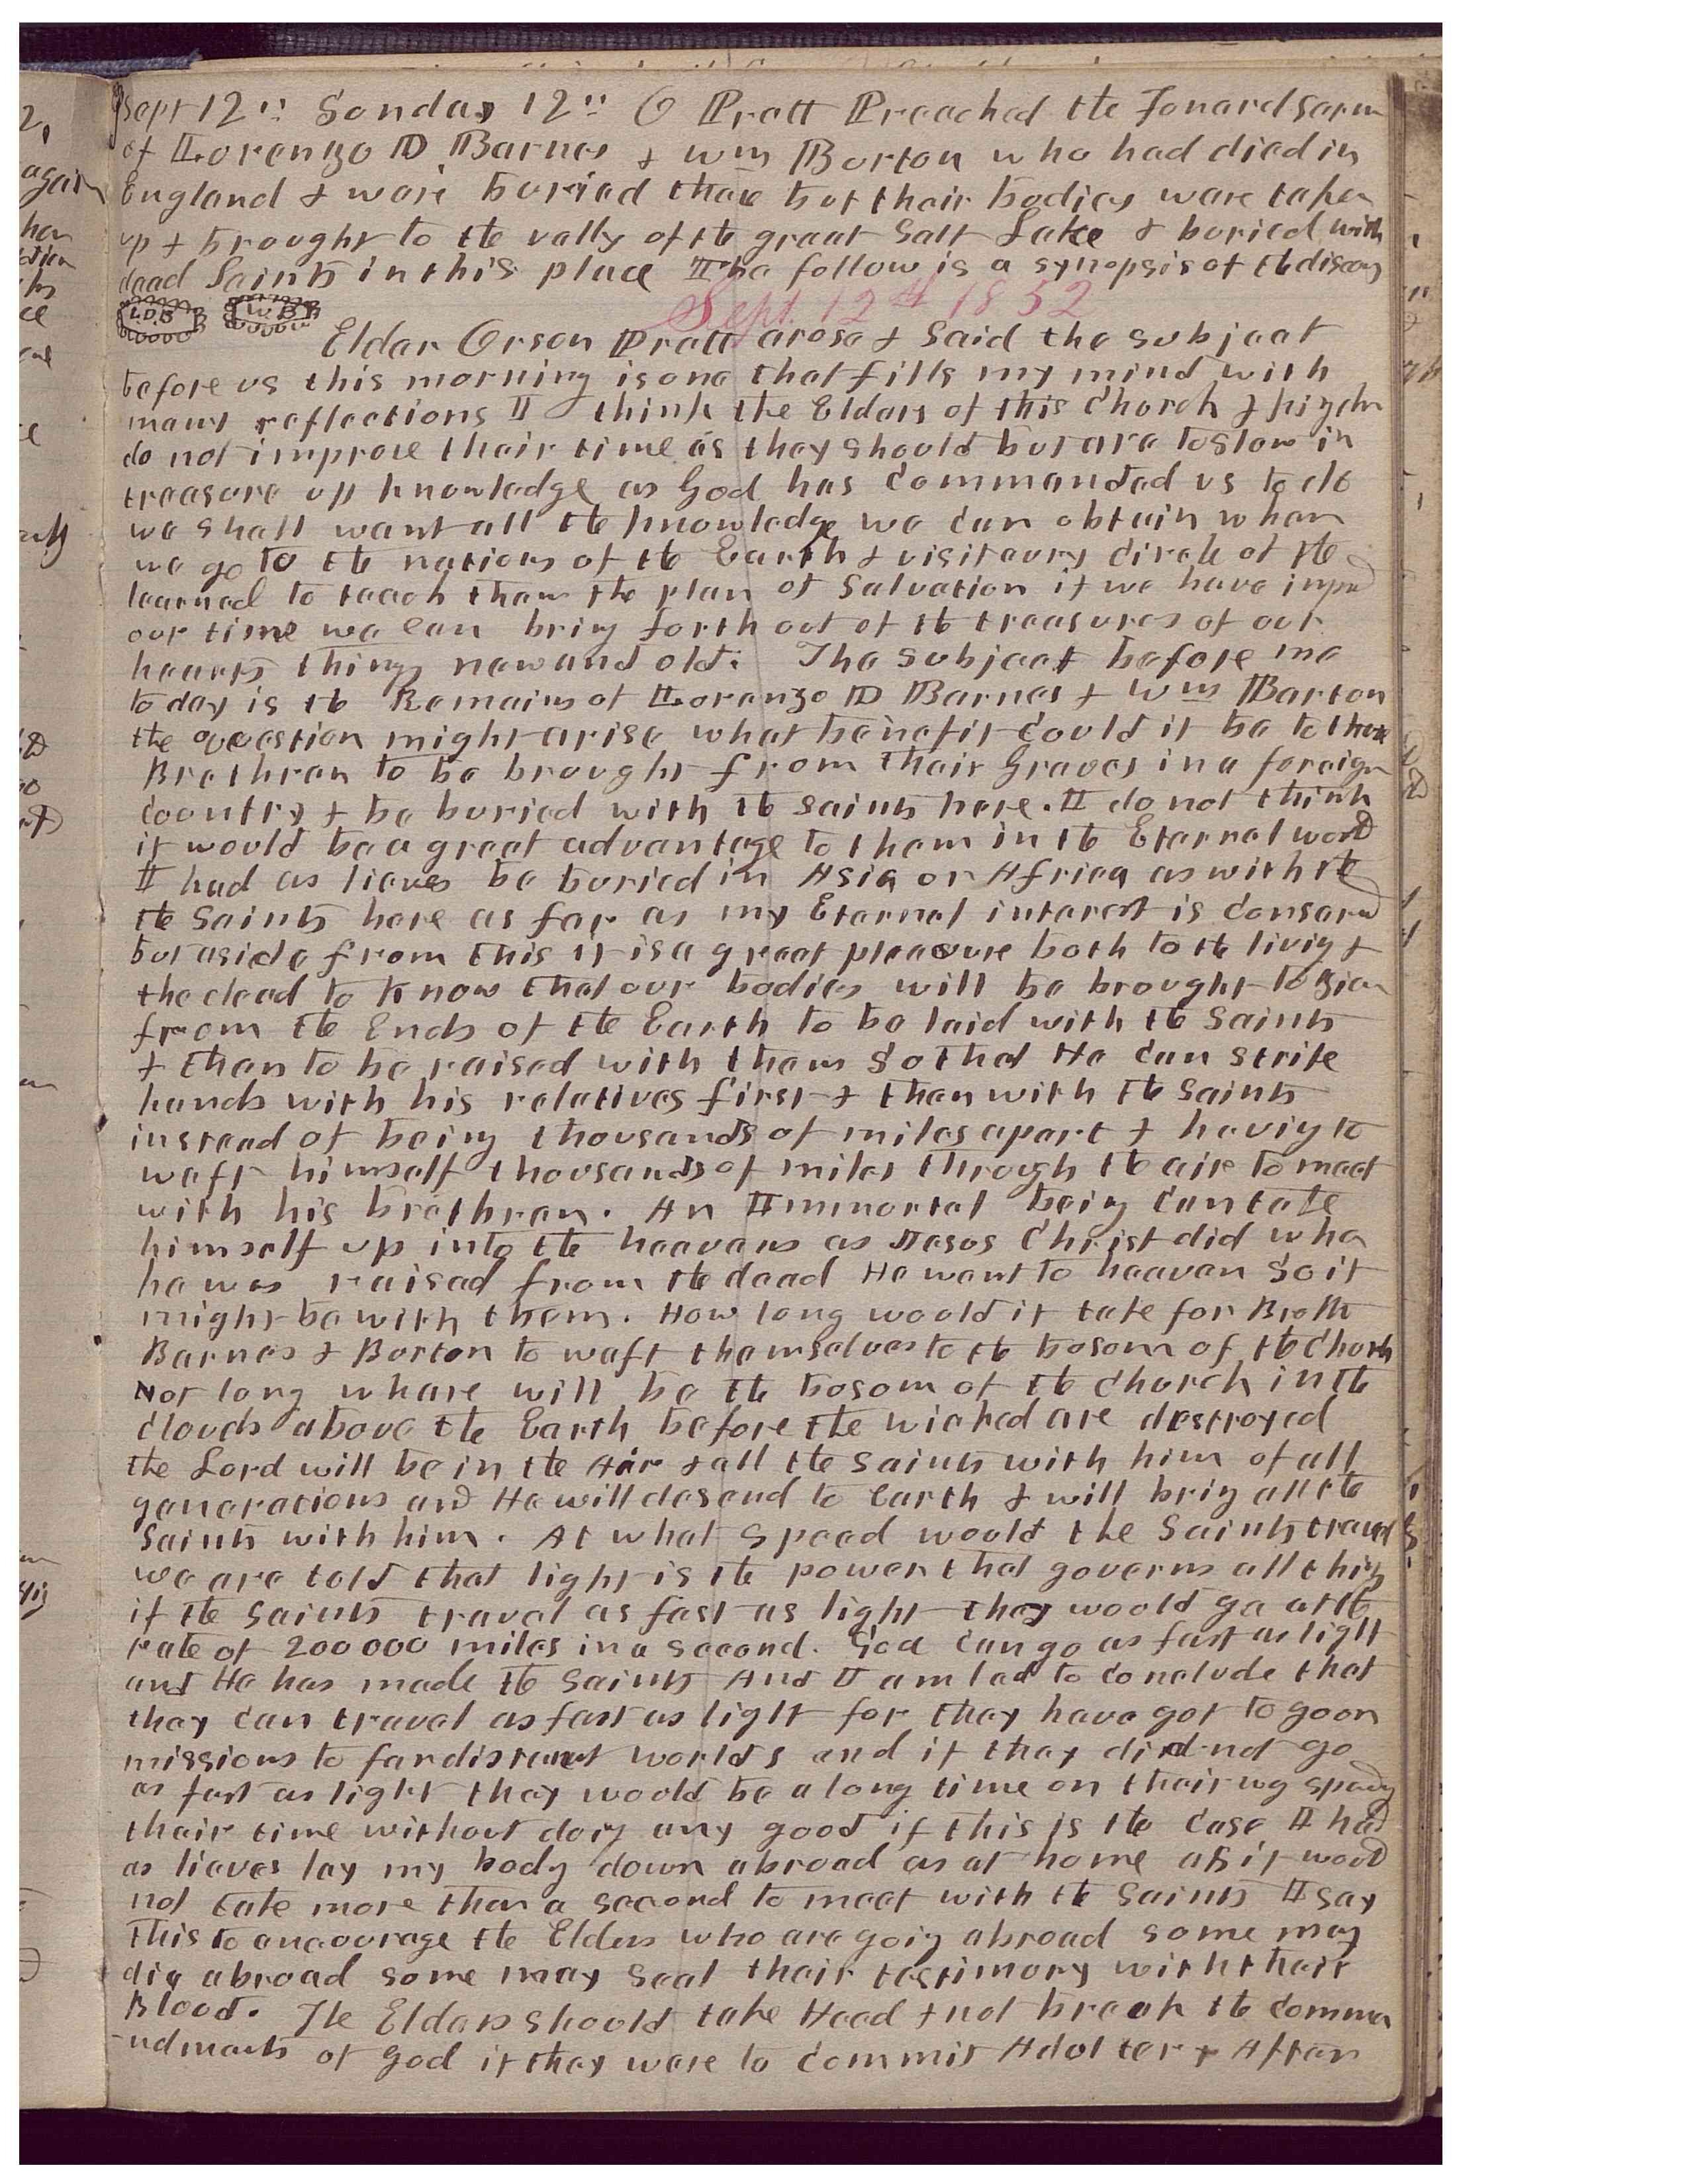 Sept 12" Sonday 12" O Pratt Preached the Fonard Sarm
of Lorenzo D Barnes & Wm Borton who had died in
England & ware buried thare but thair bodies ware taken
up & brought to the vally of the great Salt Lake & buried with
dead Saints in this place The follow is a synopsis of the discors
Sept. 12th 1852
L.D.B W B
Elder Orson Pratt arose & Said the subject
before us this morning is one that fills my mind with
many reflections I think the Elders of this Church &
do not improve thair time as they should but are to slow in
treasure up knowledge as God has Commanded us to do
we shall want all the knowledge we can obtain when
we go to the nations of the Earth & visit evry circle of the
learned to teach them the plan of Salvation if we have impd
our time we can bring forth out of the treasures of our
hearts things new and old: The subject before me
to day is the Remains of Lorenzo D Barnes & Wm Barton
the question might arise what benefit could it be to those
Brethren to be brought from thair Graves in a foreign
country & be buried with the saints here. I do not think
it would be a great advantage to them in the Eternal world
I had as lieves be buried in Asia or Africa as with the
the Saints here as far as my Eternal interest is consernd
but aside from this it is a great pleasure both to the living &
the dead to know that our bodies will be brought to Zion
from the Ends of the Earth to be laid with the Saints
& then to be raised with them so that He can strike
hands with his relatives first & then with the Saints
instead of being thousands of miles apart & having to
waft himself thousands of miles through the aire to meet
with his brethren. An Immortal being can take
himself up into the heavens as Jesus Christ did whe
he was raised from the dead He went to heaven so it
might be with them. How long would it take for Broth
Barnes & Borton to waft themselves to the bosom of the Church
Not long whare will be the bosom of the Church in the
clouds above the Earth before the wicked are destroyed
the Lord will be in the Air & all the Saints with him of all
generations and He will desend to Earth & will bring all the
Saints with him. At what speed would the Saints travel
we are told that light is the power that governs all things
if the Saints travel as fast as light they would go at the
rate of 200000 miles in a second. God can go as fast as light
and He has made the Saints And I am led to conclude that
they can travel as fast as light for they have got to go on
missions to far distant worlds and if they did not go
as fast as light they would be a long time on thair wg spendg
thair time without doing any good if this is the case I had
as lieves lay my body down abroad as at home as it would
not take more than a second to meet with the Saints I say
this to encourage the Elders who are going abroad some may
die abroad some may seal thair testimony with thair
Blood. The Elders should take Heed & not break the comma
-ndments of God if they ware to commit Adultery After